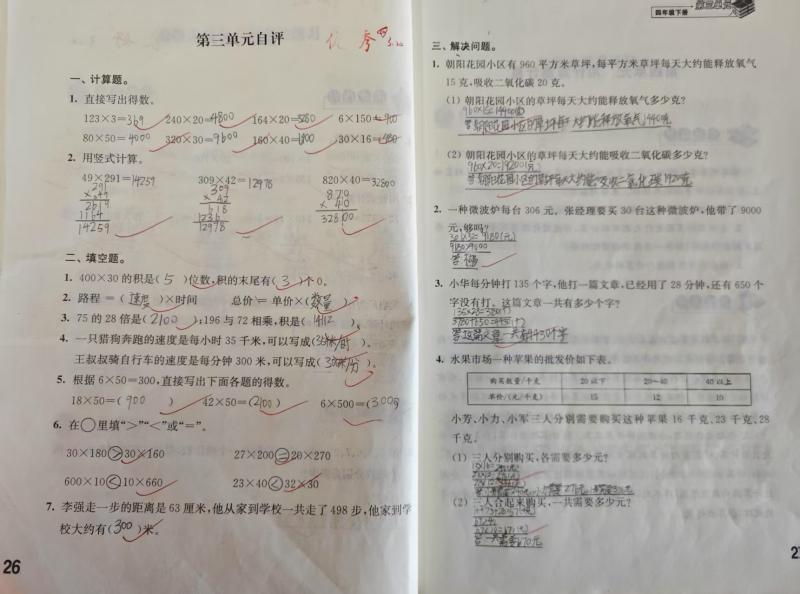 第三单元自评
优
一、计算题。
1. 直接写出得数。
123×3=369 240×20=4800 164×20=3280 6×150=900
80×50=4000 320×30=9600 160×40= 30×16=480
2. 用竖式计算。
49×291=14259 309×42=12978 820×40=32800
291 309 820
×49 ×42 ×40
2619 618 32800
1164 1236
14259 12978
二、填空题。
1. 400×30的积是(5)位数,积的末尾有(3)个0。
2. 路程=(速度)×时间 总价=单价×(数量)
3. 75的28倍是(2100);196与72相乘,积是( )。
4. 一只猎狗奔跑的速度是每小时35千米,可以写成( )。
王叔叔骑自行车的速度是每分钟300米,可以写成( )。
5. 根据6×50=300,直接写出下面各题的得数。
18×50=(900) 42×50=(2100) 6×500=(3000)
6. 在○里填“>”“<”或“=”。
30×180>30×160 27×200=20×270
600×10<10×660 23×40<32×30
7. 李强走一步的距离是63厘米,他从家到学校一共走了498步,他家到学
校大约有(300)米。
26
四年级下册
第三单元
三、解决问题。
1. 朝阳花园小区有960平方米草坪,每平方米草坪每天大约能释放氧气
15克,吸收二氧化碳20克。
(1) 朝阳花园小区的草坪每天大约能释放氧气多少克?
960×15=14400(克)
答:朝阳花园小区的草坪每天大约能释放氧气14400克
(2) 朝阳花园小区的草坪每天大约能吸收二氧化碳多少克?
960×20=19200(克)
答:朝阳花园小区的草坪每天大约能吸收二氧化碳19200克
2. 一种微波炉每台306元。张经理要买30台这种微波炉,他带了9000
元,够吗?
306×30=9180(元)
9180>9000
答:不够
3. 小华每分钟打135个字,他打一篇文章,已经用了28分钟,还有650个
字没有打。这篇文章一共有多少个字?
135×28=3780(个)
3780+650=4430(个)
答:这篇文章一共有4430个字
4. 水果市场一种苹果的批发价如下表。
购买数量/千克 20以下 20~40 40以上
单价/(元/千克) 15 12 10
小芳、小力、小军三人分别需要购买这种苹果16千克、23千克、28
千克。
(1) 三人分别购买,各需要多少元?
(2) 三人合起来购买,一共需要多少元?
答:一共需要670元